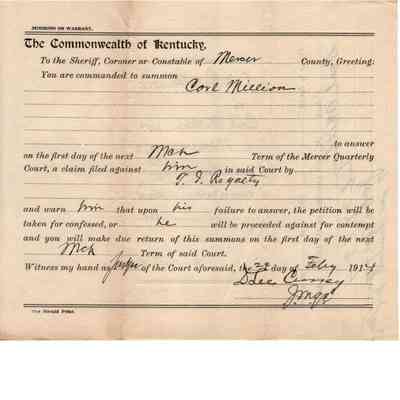 SUMMONS OR WARRANT.
The Commonwealth of Kentucky,
To the Sheriff, Coroner or Constable of Mercer County, Greeting:
You are commanded to summon
Carl Million
to answer
on the first day of the next Mch Term of the Mercer Quarterly
Court, a claim filed against him in said Court by
T. I. Royalty
and warn him that upon his failure to answer, the petition will be
taken for confessed, or he will be proceeded against for contempt
and you will make due return of this summons on the first day of the next
Mch Term of said Court.
Witness my hand as Judge of the Court aforesaid, the day of Feby 191
The Herald Print.